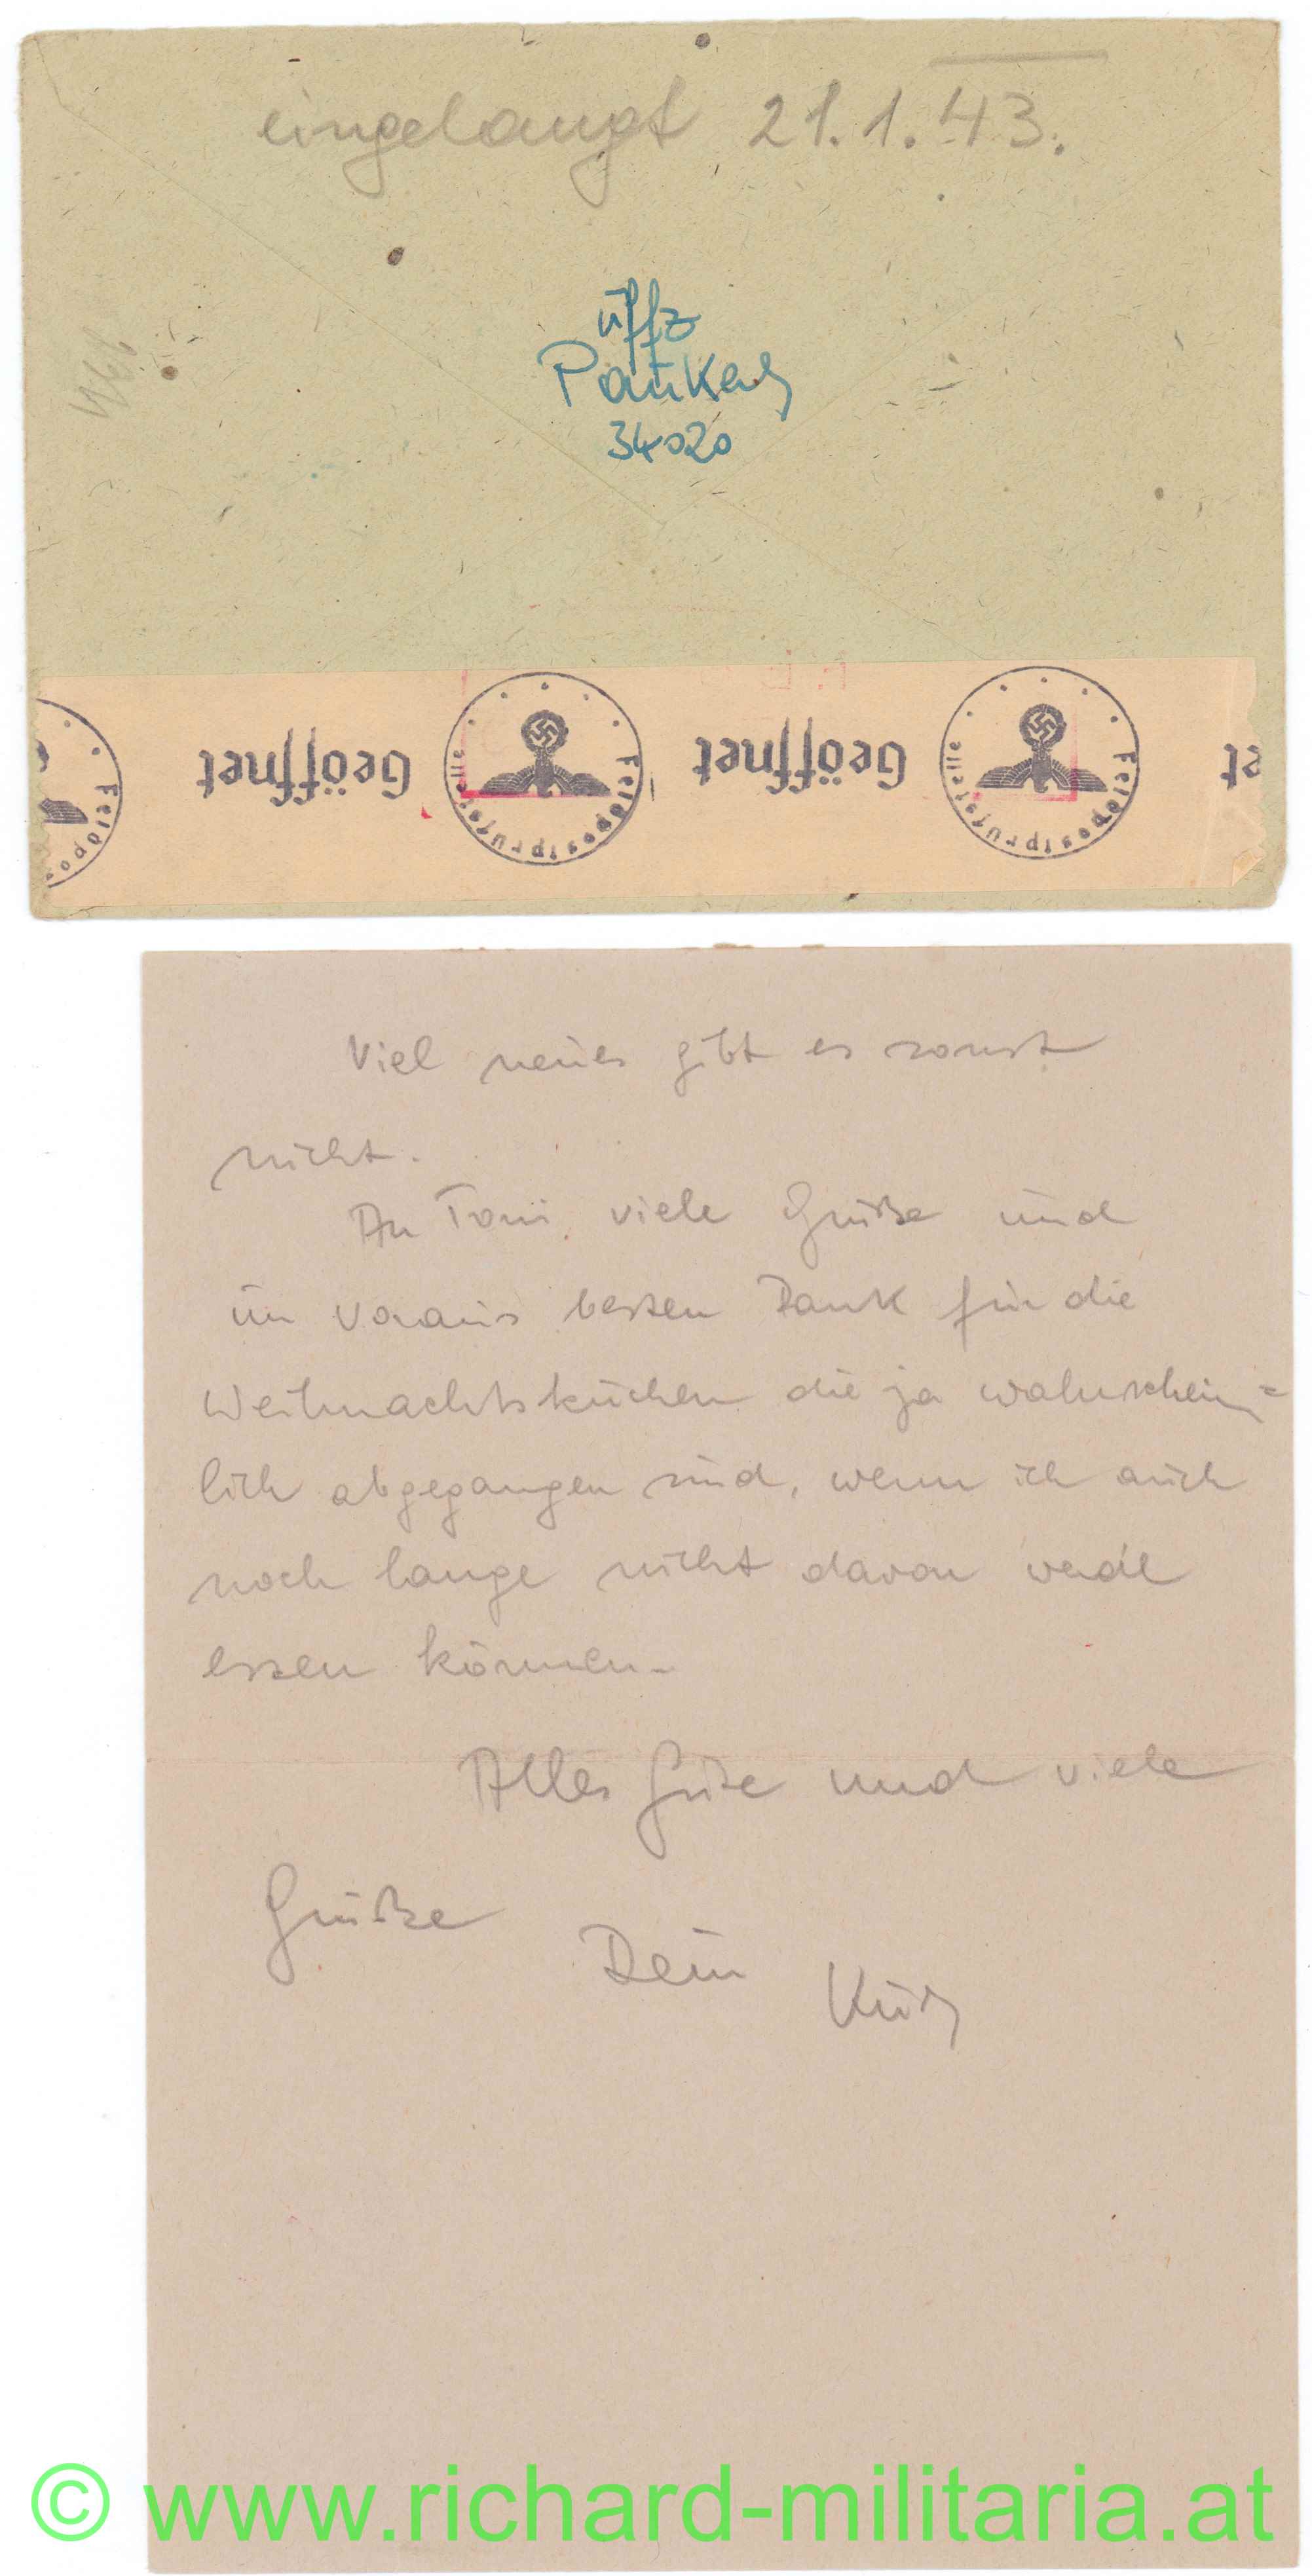 eingelangt 21.1.43.
Uffz
34020
Geöffnet Feldpostprüfstelle Geöffnet Feldpostprüfstelle
Viel neues gibt es sonst
nicht.
An Toni viele Grüße und
im voraus besten Dank für die
Weihnachtskuchen die ja wahrschein=
lich abgegangen sind, wenn ich auch
noch lange nicht davon werde
essen können.
Alles Gute und viele
Grüße
Dein
© www.richard-militaria.at